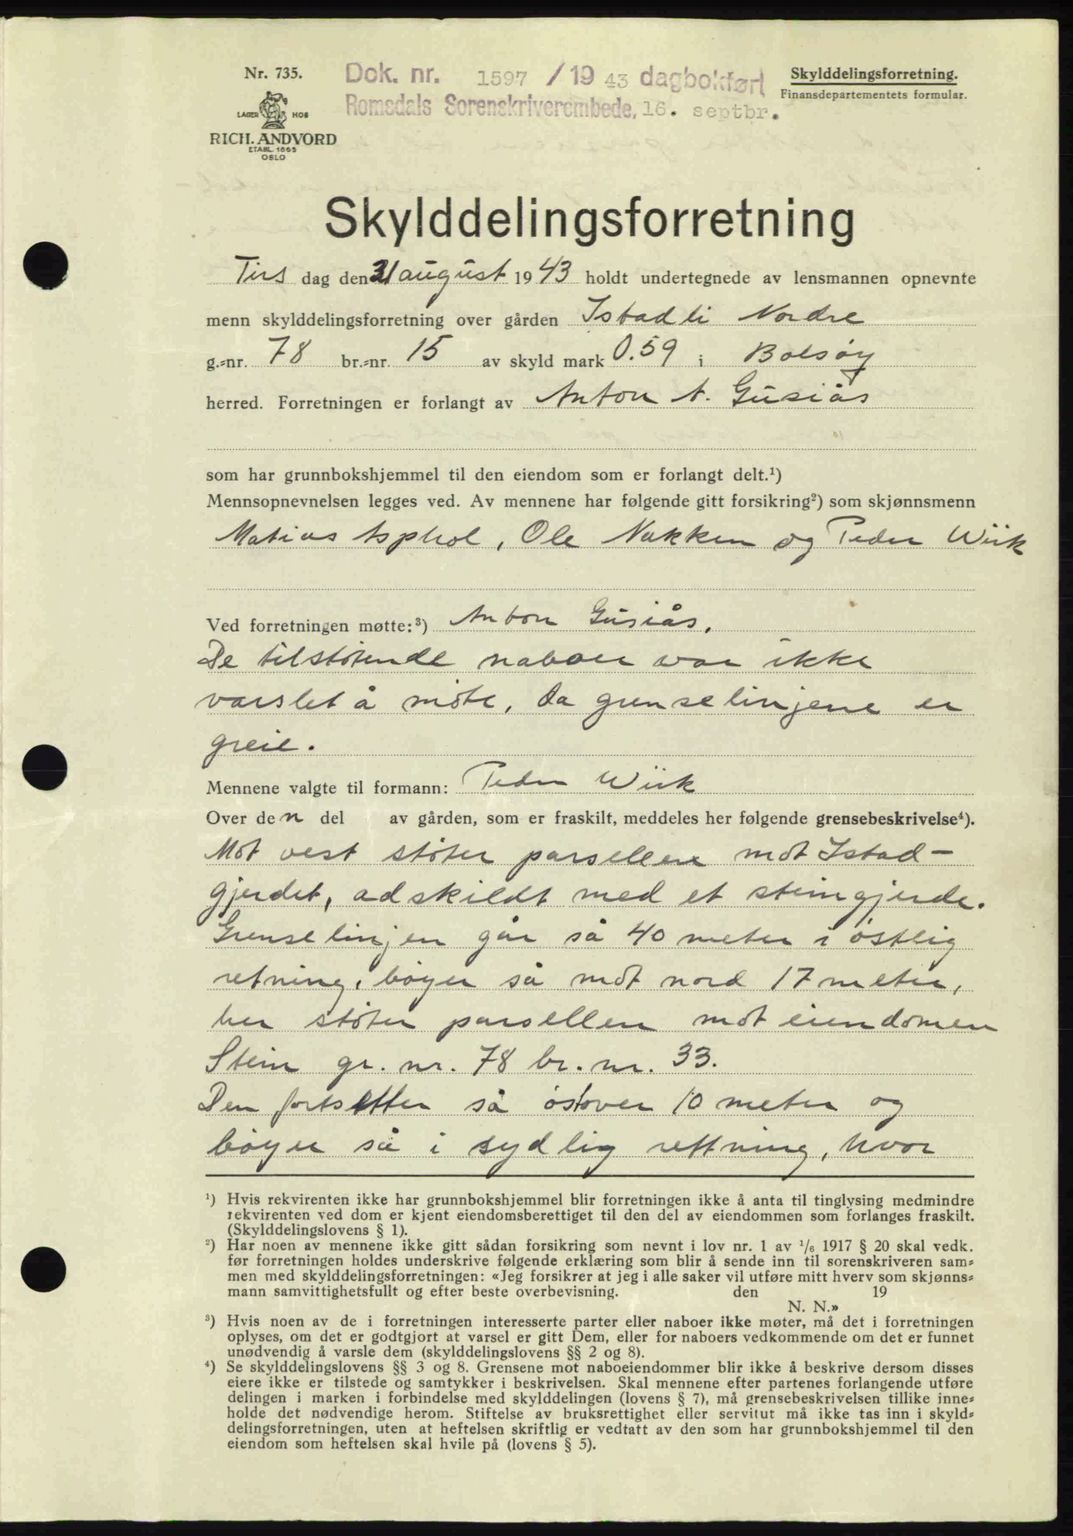 Nr. 735.
Dok. nr. 1597 / 19 43 dagbokført
Romsdals Sorenskriverembede, 16. septbr.
Skylddelingsforretning.
Finansdepartementets formular.
LAGER HOS
RICH. ANDVORD
ETABL. 1865
OSLO
Skylddelingsforretning
Tirs dag den 31 august 1943 holdt undertegnede av lensmannen opnevnte
menn skylddelingsforretning over gården Istadli Nordre
g.-nr. 78 br.-nr. 15 av skyld mark 0.59 i Bolsøy
herred. Forretningen er forlangt av Anton A. Gusiås
som har grunnbokshjemmel til den eiendom som er forlangt delt.¹)
Mennsopnevnelsen legges ved. Av mennene har følgende gitt forsikring²) som skjønnsmenn
Matias Asphol, Ole Nakken og Peder Wiik
Ved forretningen møtte:³) Anton Gusiås,
De tilstøtende naboer var ikke
varslet å møte, da grenselinjene er
greie.
Mennene valgte til formann: Peder Wiik
Over den del av gården, som er fraskilt, meddeles her følgende grensebeskrivelse⁴).
Mot vest støter parsellen mot Istad-
gjerdet, adskildt med et steingjerde.
Grenselinjen går så 40 meter i østlig
retning, bøyer så mot nord 17 meter,
her støter parsellen mot eiendomen
Stein gr. nr. 78 br. nr. 33.
Den fortsetter så østover 10 meter og
bøyer så i sydlig rettning, hvor
¹) Hvis rekvirenten ikke har grunnbokshjemmel blir forretningen ikke å anta til tinglysing medmindre
rekvirenten ved dom er kjent eiendomsberettiget til den del av eiendommen som forlanges fraskilt.
(Skylddelingslovens § 1).
²) Har noen av mennene ikke gitt sådan forsikring som nevnt i lov nr. 1 av 1/6 1917 § 20 skal vedk.
før forretningen holdes underskrive følgende erklæring som blir å sende inn til sorenskriveren sam-
men med skylddelingsforretningen: «Jeg forsikrer at jeg i alle saker vil utføre mitt hverv som skjønns-
mann samvittighetsfullt og efter beste overbevisning. den 19
N. N.»
³) Hvis noen av de i forretningen interesserte parter eller naboer ikke møter, må det i forretningen
oplyses, om det er godtgjort at varsel er gitt Dem, eller for naboers vedkommende om det er funnet
unødvendig å varsle dem (skylddelingslovens §§ 2 og 8).
⁴) Se skylddelingslovens §§ 3 og 8. Grensene mot naboeiendommer blir ikke å beskrive dersom disses
eiere ikke er tilstede og samtykker i beskrivelsen. Skal mennene efter partenes forlangende utføre
delingen i marken i forbindelse med skylddelingen (lovens § 7), må grensebeskrivelsen tillike inne-
holde det nødvendige herom. Stiftelse av bruksrettighet eller servitut må ikke tas inn i skyld-
delingsforretningen, uten at heftelsen skriftlig er vedtatt av den som har grunnbokshjemmel til den
eiendom som heftelsen skal hvile på (lovens § 5).